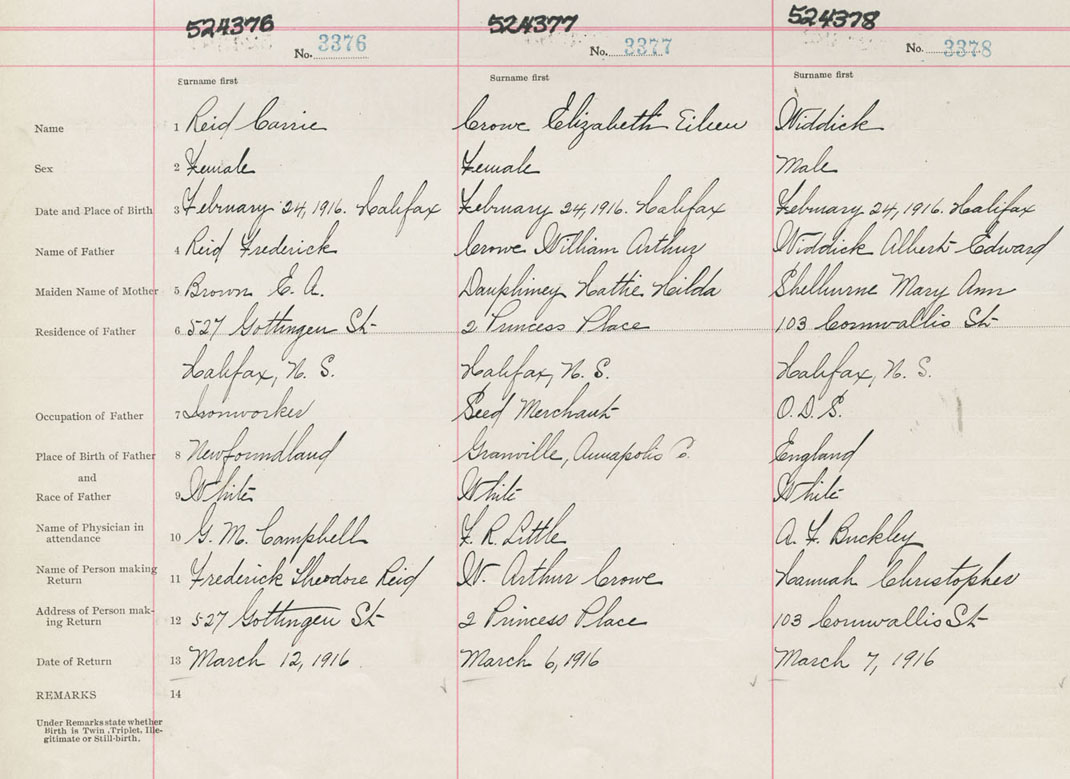 524376 524377 524378
No. 3376 No. 3377 No. 3378
Surname first Surname first Surname first
Name 1 Reid Carrie Crowe Elizabeth Eileen Widdick
Sex 2 Female Female Male
Date and Place of Birth 3 February 24, 1916. Halifax February 24, 1916. Halifax February 24, 1916. Halifax
Name of Father 4 Reid Frederick Crowe William Arthur Widdick Albert Edward
Maiden Name of Mother 5 Brown E. A. Dauphiney Hattie Hilda Shelburne Mary Ann
Residence of Father 6 527 Gottingen St 2 Princess Place 103 Cornwallis St
Halifax, N. S. Halifax, N. S. Halifax, N. S.
Occupation of Father 7 Ironworker Seed Merchant O. D. S.
Place of Birth of Father 8 Newfoundland Granville, Annapolis Co. England
and
Race of Father 9 White White White
Name of Physician in
attendance 10 G. M. Campbell F. R. Little A. F. Buckley
Name of Person making
Return 11 Frederick Theodore Reid W. Arthur Crowe Hannah Christopher
Address of Person mak-
ing Return 12 527 Gottingen St 2 Princess Place 103 Cornwallis St
Date of Return 13 March 12, 1916 March 6, 1916 March 7, 1916
REMARKS 14
Under Remarks state whether
Birth is Twin, Triplet, Ille-
gitimate or Still-birth.